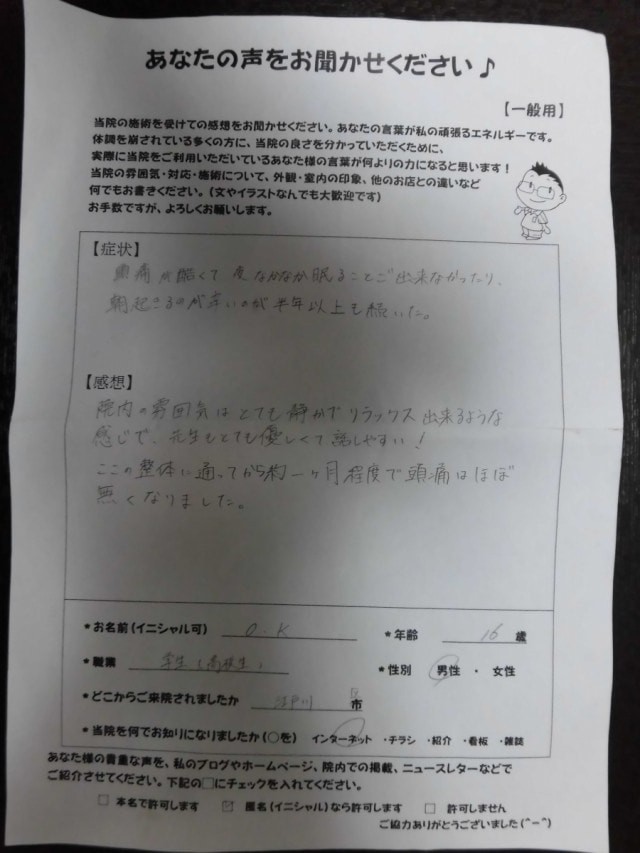 あなたの声をお聞かせください♪
【一般用】
当院の施術を受けての感想をお聞かせください。あなたの言葉が私の頑張るエネルギーです。
体調を崩されている多くの方に、当院の良さを分かっていただくために、
実際に当院をご利用いただいているあなた様の言葉が何よりの力になると思います！
当院の雰囲気・対応・施術について、外観・室内の印象、他のお店との違いなど
何でもお書きください。（文やイラストなんでも大歓迎です）
お手数ですが、よろしくお願いします。
【症状】
頭痛が酷くて夜なかなか眠ることご出来なかったり、
朝起きるのが辛いのが半年以上も続いた。
【感想】
院内の雰囲気はとても静かでリラックス出来るような
感じで、先生もとても優しくて話しやすい！
ここの整体に通ってから約一ヶ月程度で頭痛はほぼ
無くなりました。
*お名前（イニシャル可） O.K
*年齢 16 歳
*職業 学生（高校生）
*性別 男性 ・ 女性
*どこからご来院されましたか 江戸川 区 市
*当院を何でお知りになりましたか（○を） インターネット ・チラシ ・紹介 ・看板 ・雑誌
あなた様の貴重な声を、私のブログやホームページ、院内での掲載、ニュースレターなどで
ご紹介させてください。下記の□にチェックを入れてください。
□ 本名で許可します ☑ 匿名（イニシャル）なら許可します □ 許可しません
ご協力ありがとうございました(^ー^)